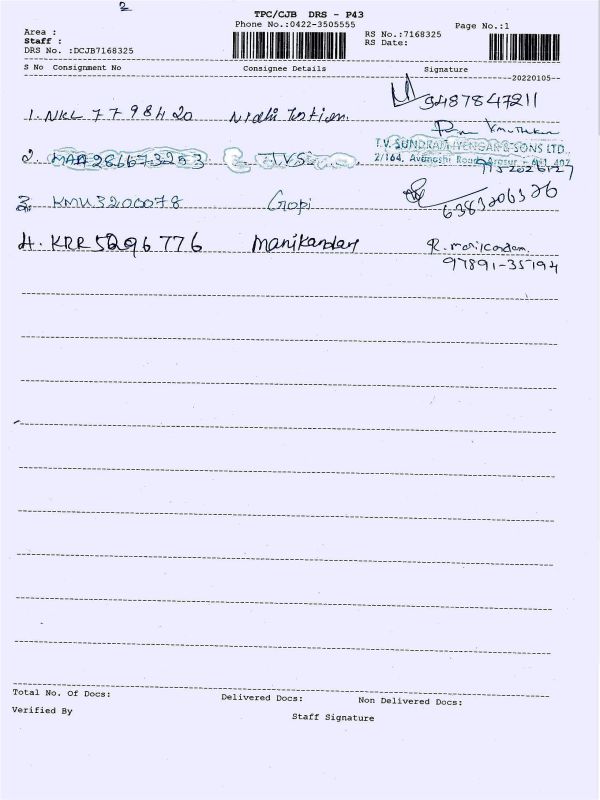 2
TPC/CJB DRS - P43
Phone No.:0422-3505555
Page No.:1
Area :
Staff :
DRS No. :DCJB7168325
RS No.:7168325
RS Date:
S No Consignment No Consignee Details Signature
20220105
1. NKL 7798420 Nidhi 9487847211
T.V. SUNDRAM IYENGAR & SONS LTD.,
2. MAA286673253 TVS 2/164, Avanashi Road, Arasur - 641 407
3. KMU3200078 Gopi 6383206326
4. KRR5296776 Manikandan R. manikandan.
97891-35194
Total No. Of Docs: Delivered Docs: Non Delivered Docs:
Verified By Staff Signature